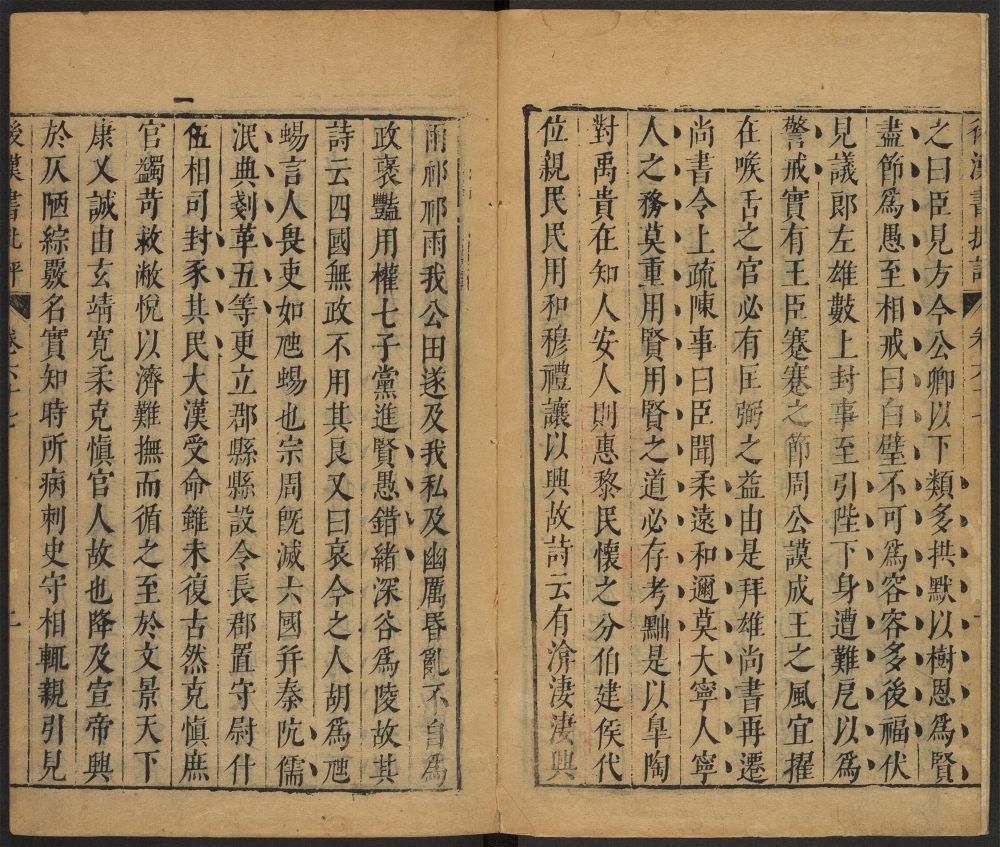 之曰臣見方今公卿以下類多拱默以樹恩爲賢
盡節爲愚至相戒曰白璧不可爲容容多後福伏
見議郎左雄數上封事至引陛下身遭難戹以爲
警戒實有王臣蹇蹇之節周公謨成王之風宜擢
在喉舌之官必有匡弼之益由是拜雄尚書再遷
尚書令上疏陳事曰臣聞柔遠和邇莫大寧人寧
人之務莫重用賢用賢之道必存考黜是以臯陶
對禹貴在知人安人則惠黎民懷之分伯建侯代
位親民民用和穆禮讓以興故詩云有渰淒淒興
雨祁祁雨我公田遂及我私及幽厲昏亂不自爲
政襃豔用權七子黨進賢愚錯緒深谷爲陵故其
詩云四國無政不用其良又曰哀今之人胡爲虺
蜴言人畏吏如虺蜴也宗周旣滅六國幷秦阬儒
泯典剗革五等更立郡縣縣設令長郡置守尉什
伍相司封豕其民大漢受命雖未復古然克愼庶
官蠲苛救敝悅以濟難撫而循之至於文景天下
康乂誠由玄靖寛柔克愼官人故也降及宣帝興
於仄陋綜覈名實知時所病刺史守相輒親引見
後漢書批評 卷六十七